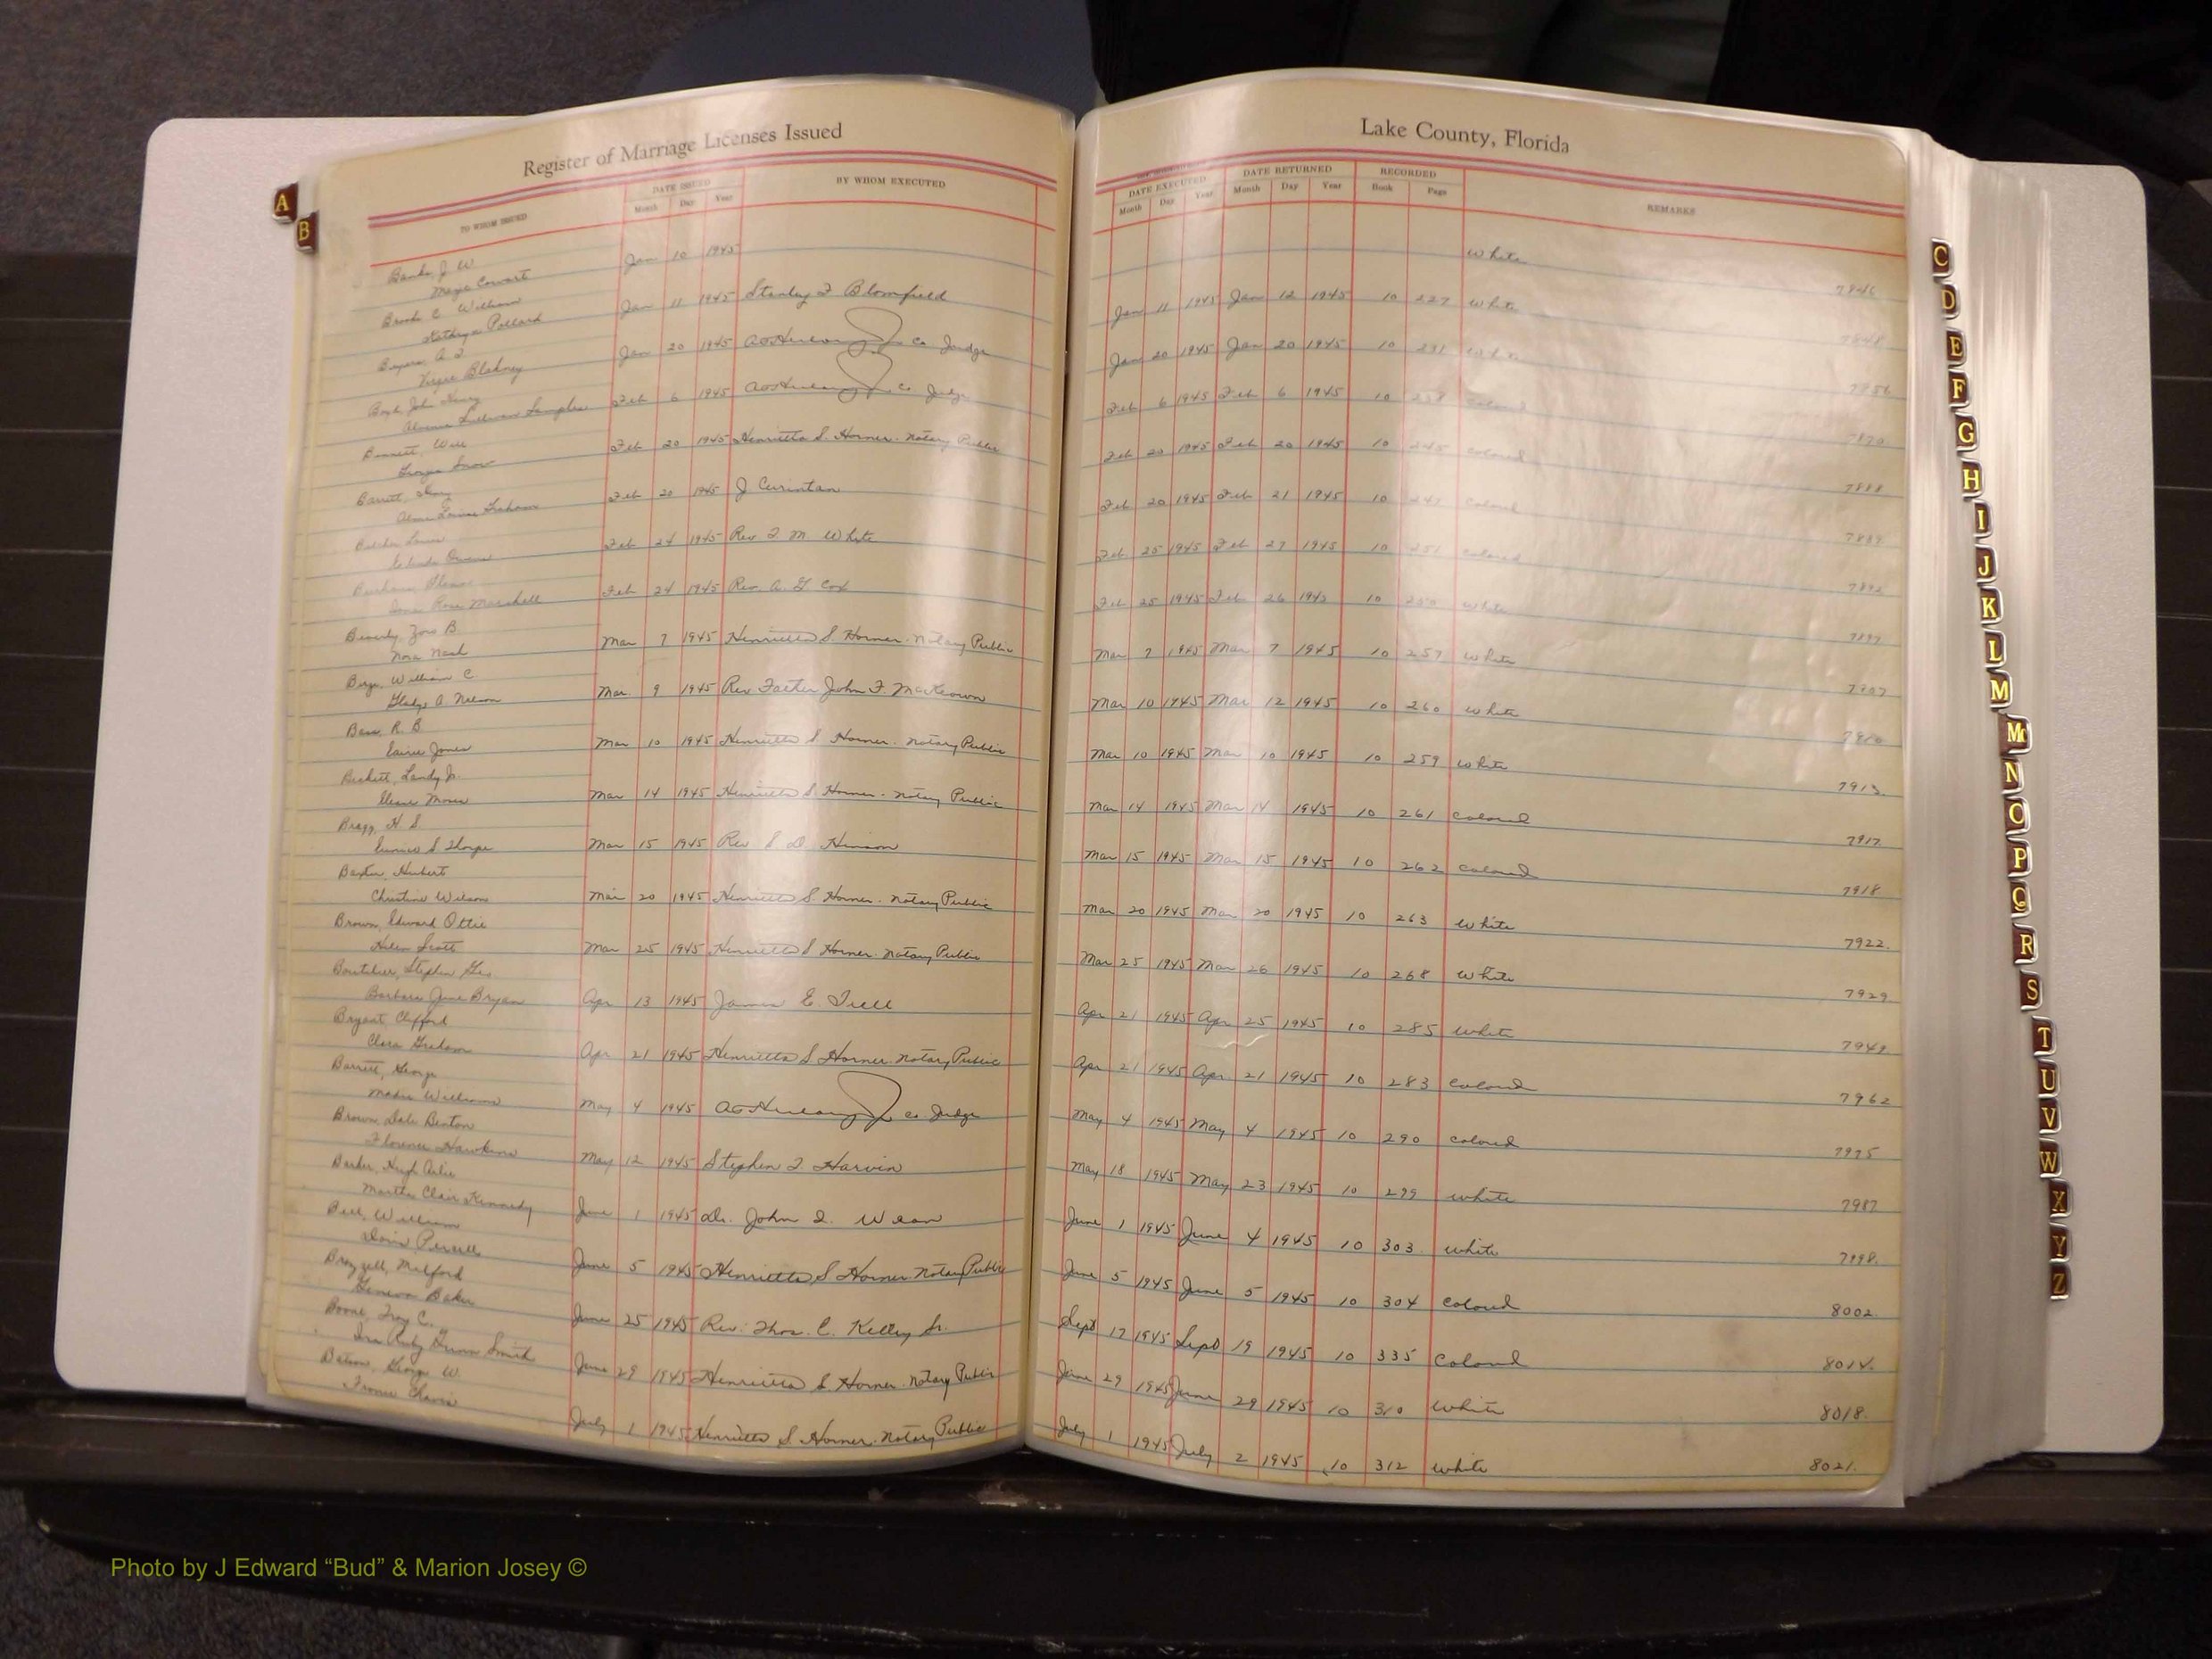 Register of Marriage Licenses Issued
Lake County, Florida
TO WHOM ISSUED
DATE ISSUED
Month Day Year
BY WHOM EXECUTED
DATE EXECUTED
Month Day Year
DATE RETURNED
Month Day Year
RECORDED
Book Page
REMARKS
A
B
Banks, J. W.
Jan 10 1945 White 7846
Brooks C. William
Kathryn Pollard
Jan 11 1945 Stanley F Blomfield Jan 11 1945 Jan 12 1945 10 227 White 7848
Blakney
Jan 20 1945 Co Judge Jan 20 1945 Jan 20 1945 10 231 White 7856
Boyd, John Henry
Feb 6 1945 Co Judge Feb 6 1945 Feb 6 1945 10 238 Colored 7870
Bennett, Will
Georgia Snow
Feb 20 1945 Henrietta S. Horner. Notary Public Feb 20 1945 Feb 20 1945 10 245 Colored 7888
Barrett,
Alma Louise Graham
Feb 20 1945 J Curinton Feb 20 1945 Feb 21 1945 10 247 Colored 7889
Feb 24 1945 Rev. F. M. White Feb 25 1945 Feb 27 1945 10 251 Colored 7892
Rose Marshall
Feb 24 1945 Rev. A. G Cox Feb 25 1945 Feb 26 1945 10 250 White 7897
Beverly, B
Nora Nash
Mar 7 1945 Henrietta S. Horner. Notary Public Mar 7 1945 Mar 7 1945 10 257 White 7907
Birge, William C.
Gladys A Nelson
Mar 9 1945 Rev. Father John F. MacKeown Mar 10 1945 Mar 12 1945 10 260 White 7910
Bass, R. B.
Jones
Mar 10 1945 Henrietta S. Horner. Notary Public Mar 10 1945 Mar 10 1945 10 259 White 7913
Beckett, Landy Jr.
Mar 14 1945 Henrietta S. Horner. Notary Public Mar 14 1945 Mar 14 1945 10 261 Colored 7917
Bragg, H. S.
Eunice S Thorpe
Mar 15 1945 Rev S. D. Hinson Mar 15 1945 Mar 15 1945 10 262 Colored 7918
Baxter, Hubert
Christine Wilson
Mar 20 1945 Henrietta S Horner. Notary Public Mar 20 1945 Mar 20 1945 10 263 White 7922
Brown, Edward Ottie
Helen Scott
Mar 25 1945 Henrietta S Horner. Notary Public Mar 25 1945 Mar 26 1945 10 268 White 7929
Boutelier, Stephen Geo
Barbara Jane Bryan
Apr 13 1945 James E. Apr 21 1945 Apr 25 1945 10 285 White 7949
Bryant, Clifford
Clara Graham
Apr 21 1945 Henrietta S Horner. Notary Public Apr 21 1945 Apr 21 1945 10 283 Colored 7962
Barrett, George
Williams
May 4 1945 Co Judge May 4 1945 May 4 1945 10 290 Colored 7975
Brown, Dale Benton
Florence Hawkins
May 12 1945 Stephen T Harvin May 18 1945 May 23 1945 10 299 White 7987
Barker, Hugh Arlie
Martha Clair Kennedy
June 1 1945 Dr. John June 1 1945 June 4 1945 10 303 White 7998
Bell, William
June 5 1945 Henrietta S Horner. Notary Public June 5 1945 June 5 1945 10 304 Colored 8002
Brazzell, Milford
Geneva Baker
June 25 1945 Rev. Thos. C. Kelley Sr. Sept 17 1945 Sept 19 1945 10 335 Colored 8014
Boone, Troy C.
Ina Ruby Dunn Smith
June 29 1945 Henrietta S. Horner. Notary Public June 29 1945 June 29 1945 10 310 White 8018
George W.
July 1 1945 Henrietta S. Horner. Notary Public July 1 1945 July 2 1945 10 312 White 8021
C
D
E
F
G
H
I
J
K
L
M
Mc
N
O
P
Q
R
S
T
U
V
W
X
Y
Z
Photo by J Edward “Bud” & Marion Josey ©